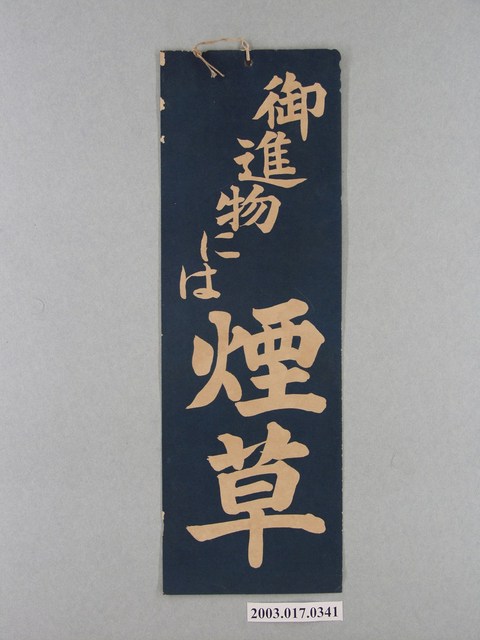 御進物には
煙草
2003.017.0341